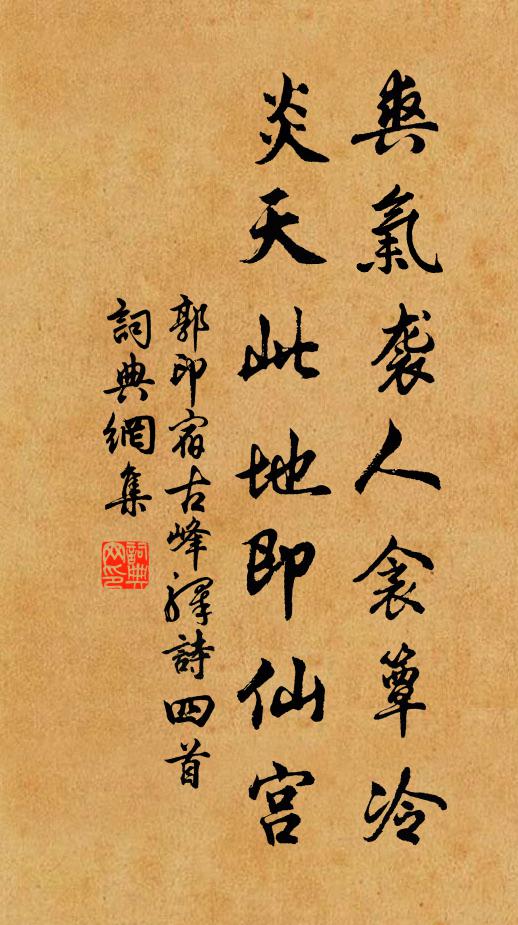 爽氣袭人衾簟冷
炎天此地即仙宫
郭印宿古峰驛詩四首
詞典網集
詞典网印